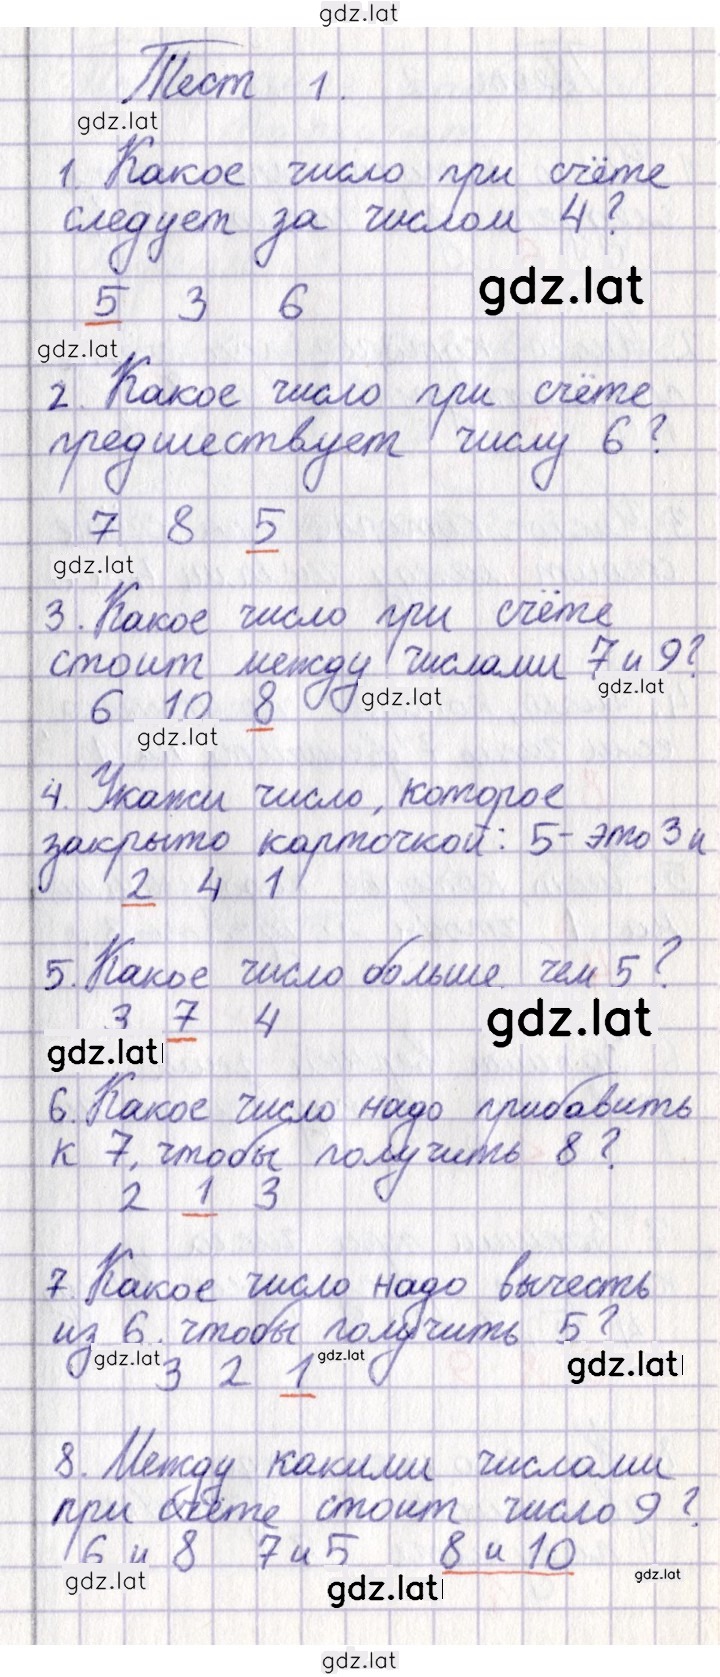 gdz.lat
Тест 1.
gdz.lat
1. Какое число при счёте
следует за числом 4?
gdz.lat
5 3 6
gdz.lat
2. Какое число при счёте
предшествует числу 6?
7 8 5
gdz.lat
3. Какое число при счёте
стоит между числами 7 и 9?
gdz.lat
6 10 8
gdz.lat
gdz.lat
4. Укажи число, которое
закрыто карточкой: 5 - это 3 и
2 4 1
5. Какое число больше чем 5?
3 7 4
gdz.lat
gdz.lat
6. Какое число надо прибавить
к 7, чтобы получить 8?
2 1 3
7. Какое число надо вычесть
из 6, чтобы получить 5?
gdz.lat
gdz.lat
gdz.lat
3 2 1
8. Между какими числами
при счёте стоит число 9?
6 и 8 7 и 5 8 и 10
gdz.lat
gdz.lat
gdz.lat
gdz.lat